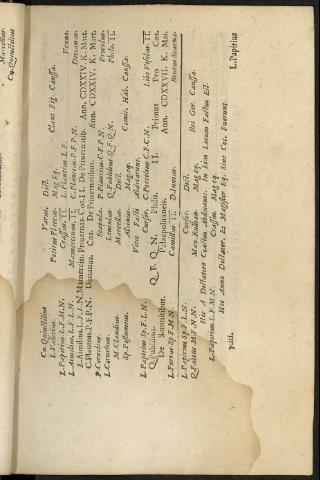 Marcellus
Cn. Quinctilius
Cn. Quinctilius Varus, Dict. Clavi Fig. Caussa.
L. Valerius Potitus Flaccus, Mag. Eq.
L. Papirius L.F.M.N. Crassus II. L. Plautius L.F. Venno.
L. Æmilius, L.F.L.N. Mamercinus, II. C. Plautius, P.F.P.N. Decianus.
L. Æmilius, L.F.L.N. Mamercin. Privernas. Cos. II. De Privernatib. Ann. CDXXIV. K. Mart.
C. Plautius. P.F.P.N. Decianus. Cos. De Privernatibus. Ann. CDXXIV. K. Mart.
P. Cornelius. Scapula. P. Plautius. C.F.P.N. Proculus.
L. Cornelius. Lentulus Q. Publilius Q.F.Q.N. Philo. II.
M. Claudius. Marcellus. Dict. Comit. Hab. Caussa.
Sp. Postumius. Albinus. Mag. eq.
Vitio Facti Abdicarunt.
L. Papirius Sp. F.L.N. Cursor. C. Poetelius C.F.C.N. Libo Visolus. II.
Q. Publilius Q. F. Q. N. Philo. II. Primus Pro Cos.
De Samnitibus. Palaepolitaneis. Ann. CDXXVII. K. Mai.
L. Furius Sp. F.M.N. Camillus II. D. Junius. Brutus Scaeva.
L. Papirius Sp. F.L.N. Cursor. Dict. Rei Ger. Caussa.
Q. Fabius M.N.N. Max. Rullian. Mag. eq.
Hic A Dictatore Coactus Abdicavit. In Eius Locum Factus Est.
L. Papirius L.F.M.N. Crassus. Mag. eq.
Hoc Anno Dictator, Et Magister Eq. Sine Cos. Fuerunt.
L. Papirius